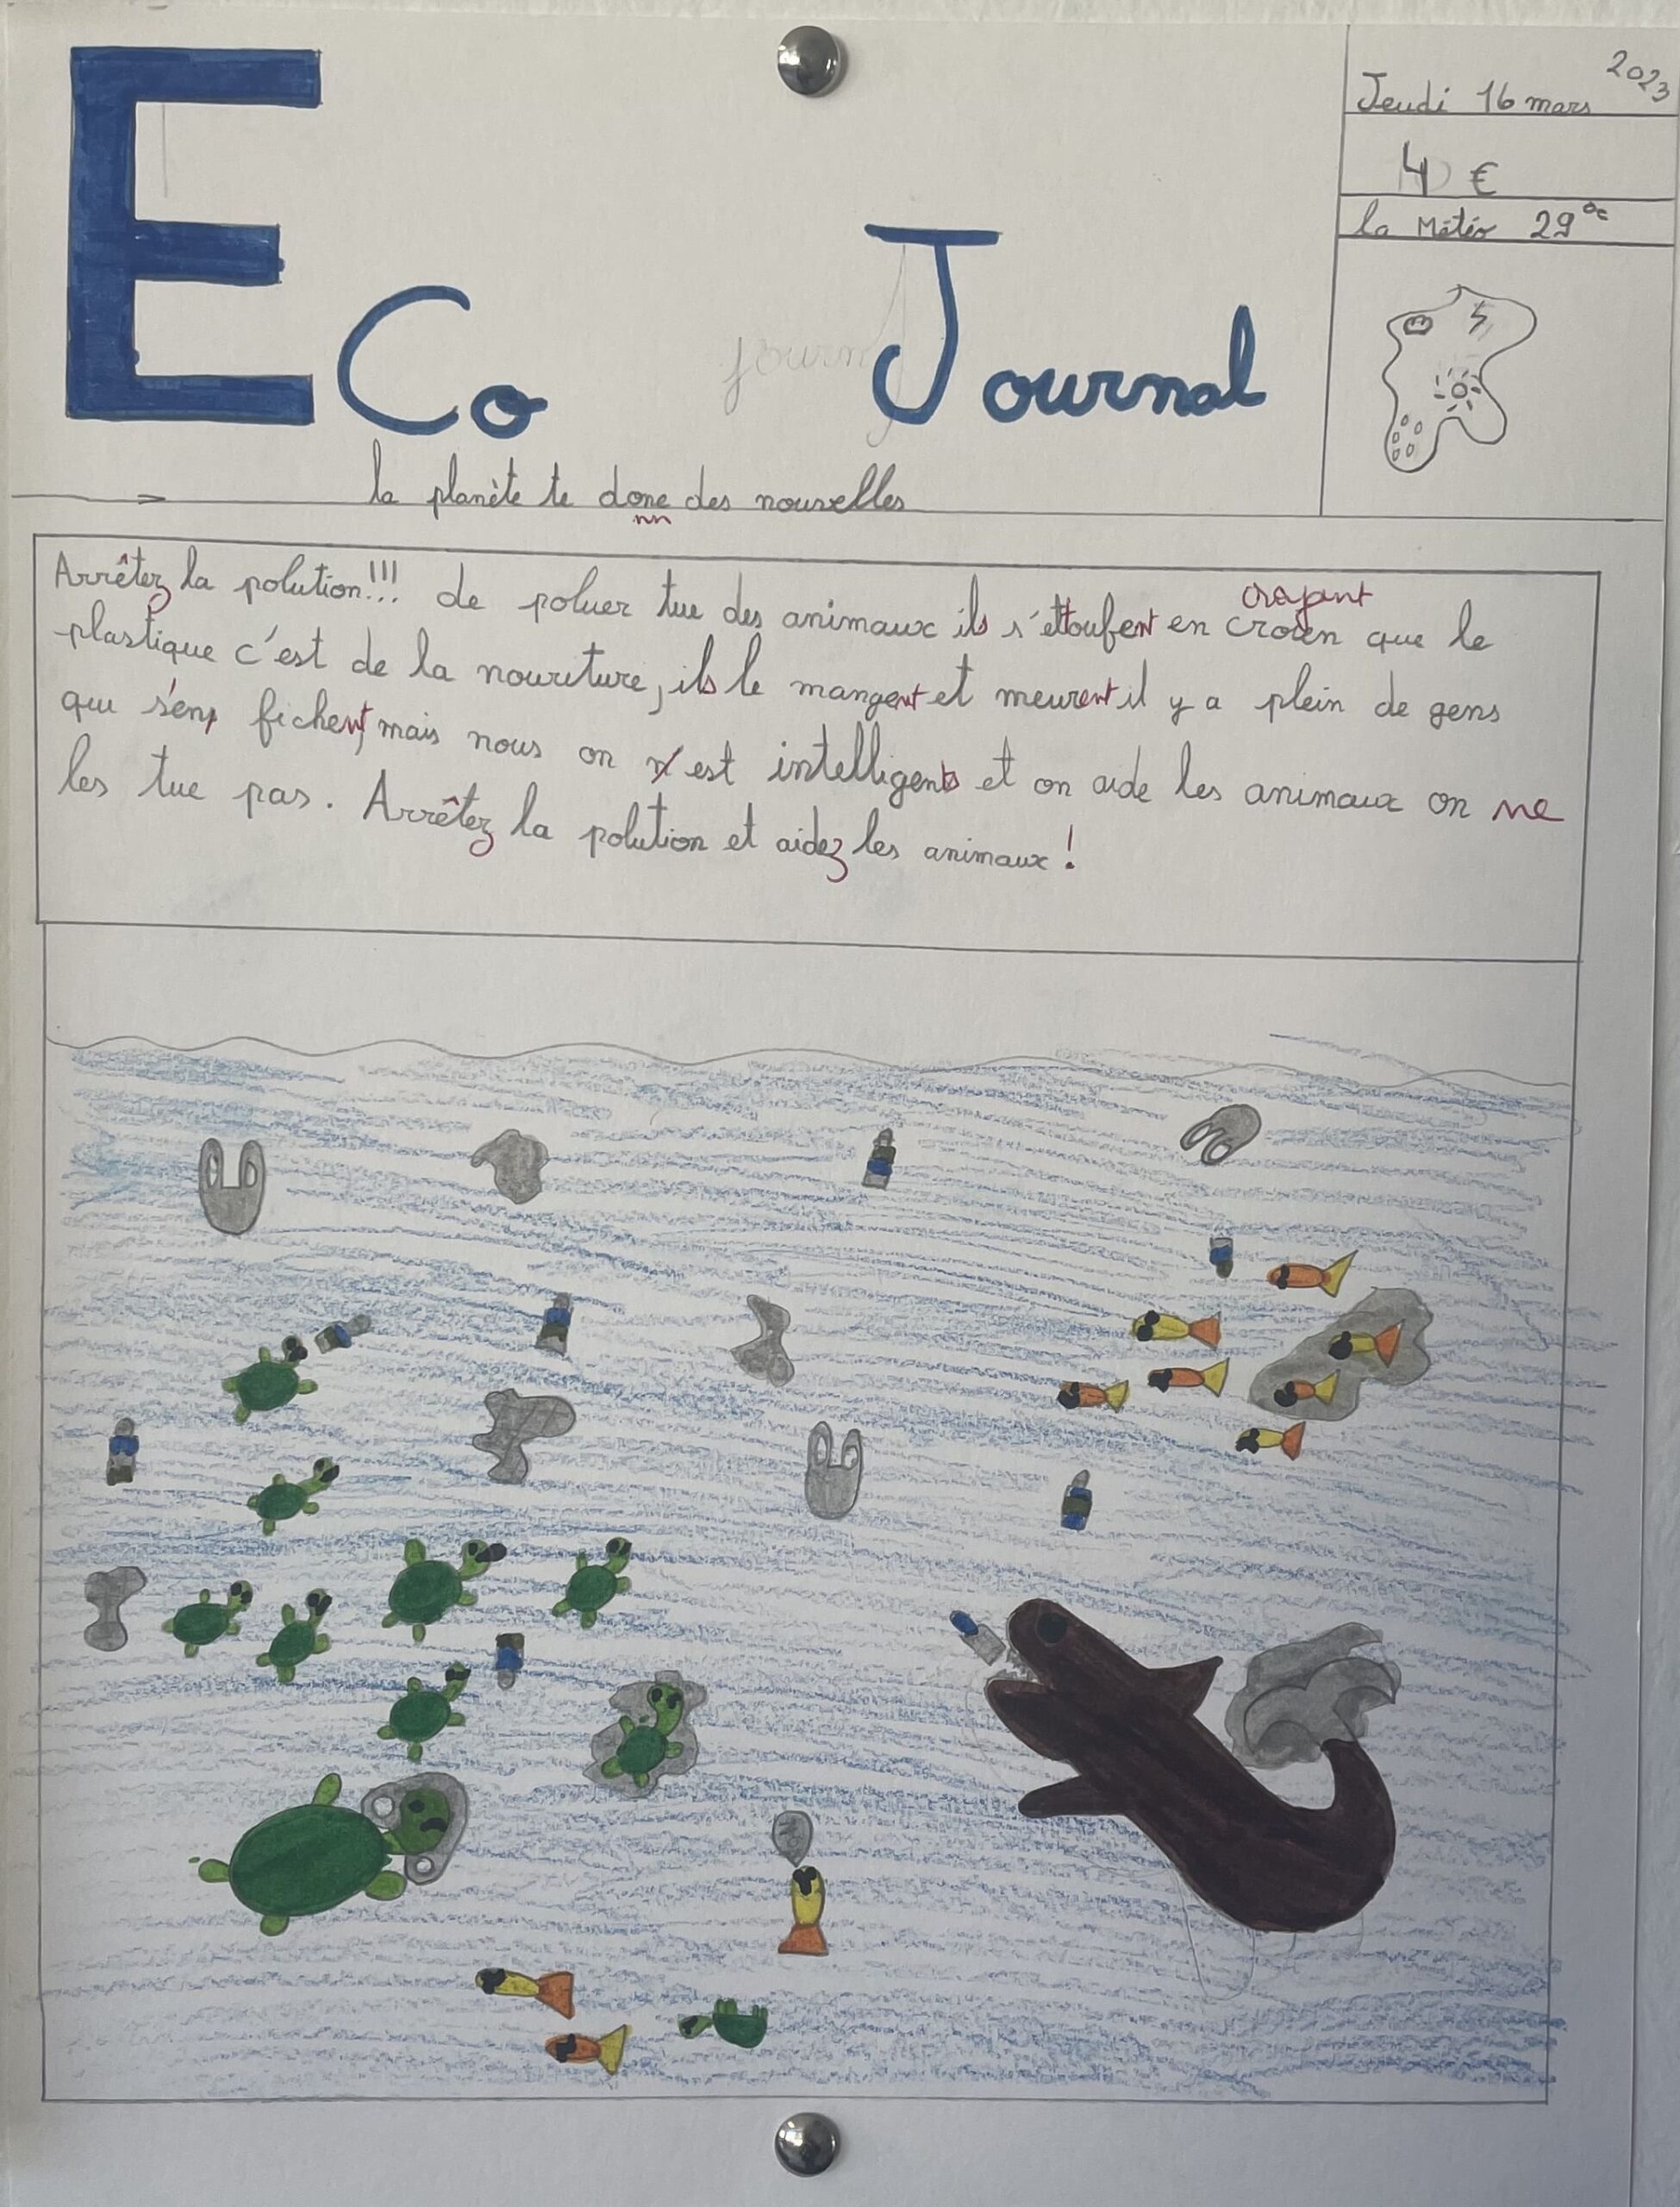 2023
Jeudi 16 mars
4 €
la Météo 29°c
ECo Journal
la planète te done des nouvelles
nn
Arrêtez la polution!!! de poluer tue des animaux ils s'étoufent en croien croyant que le
plastique c'est de la nouriture, ils le mangent et meurent il y a plein de gens
qui s'en fichent, mais nous on est intelligents et on aide les animaux on ne
les tue pas. Arrêtez la polution et aidez les animaux !